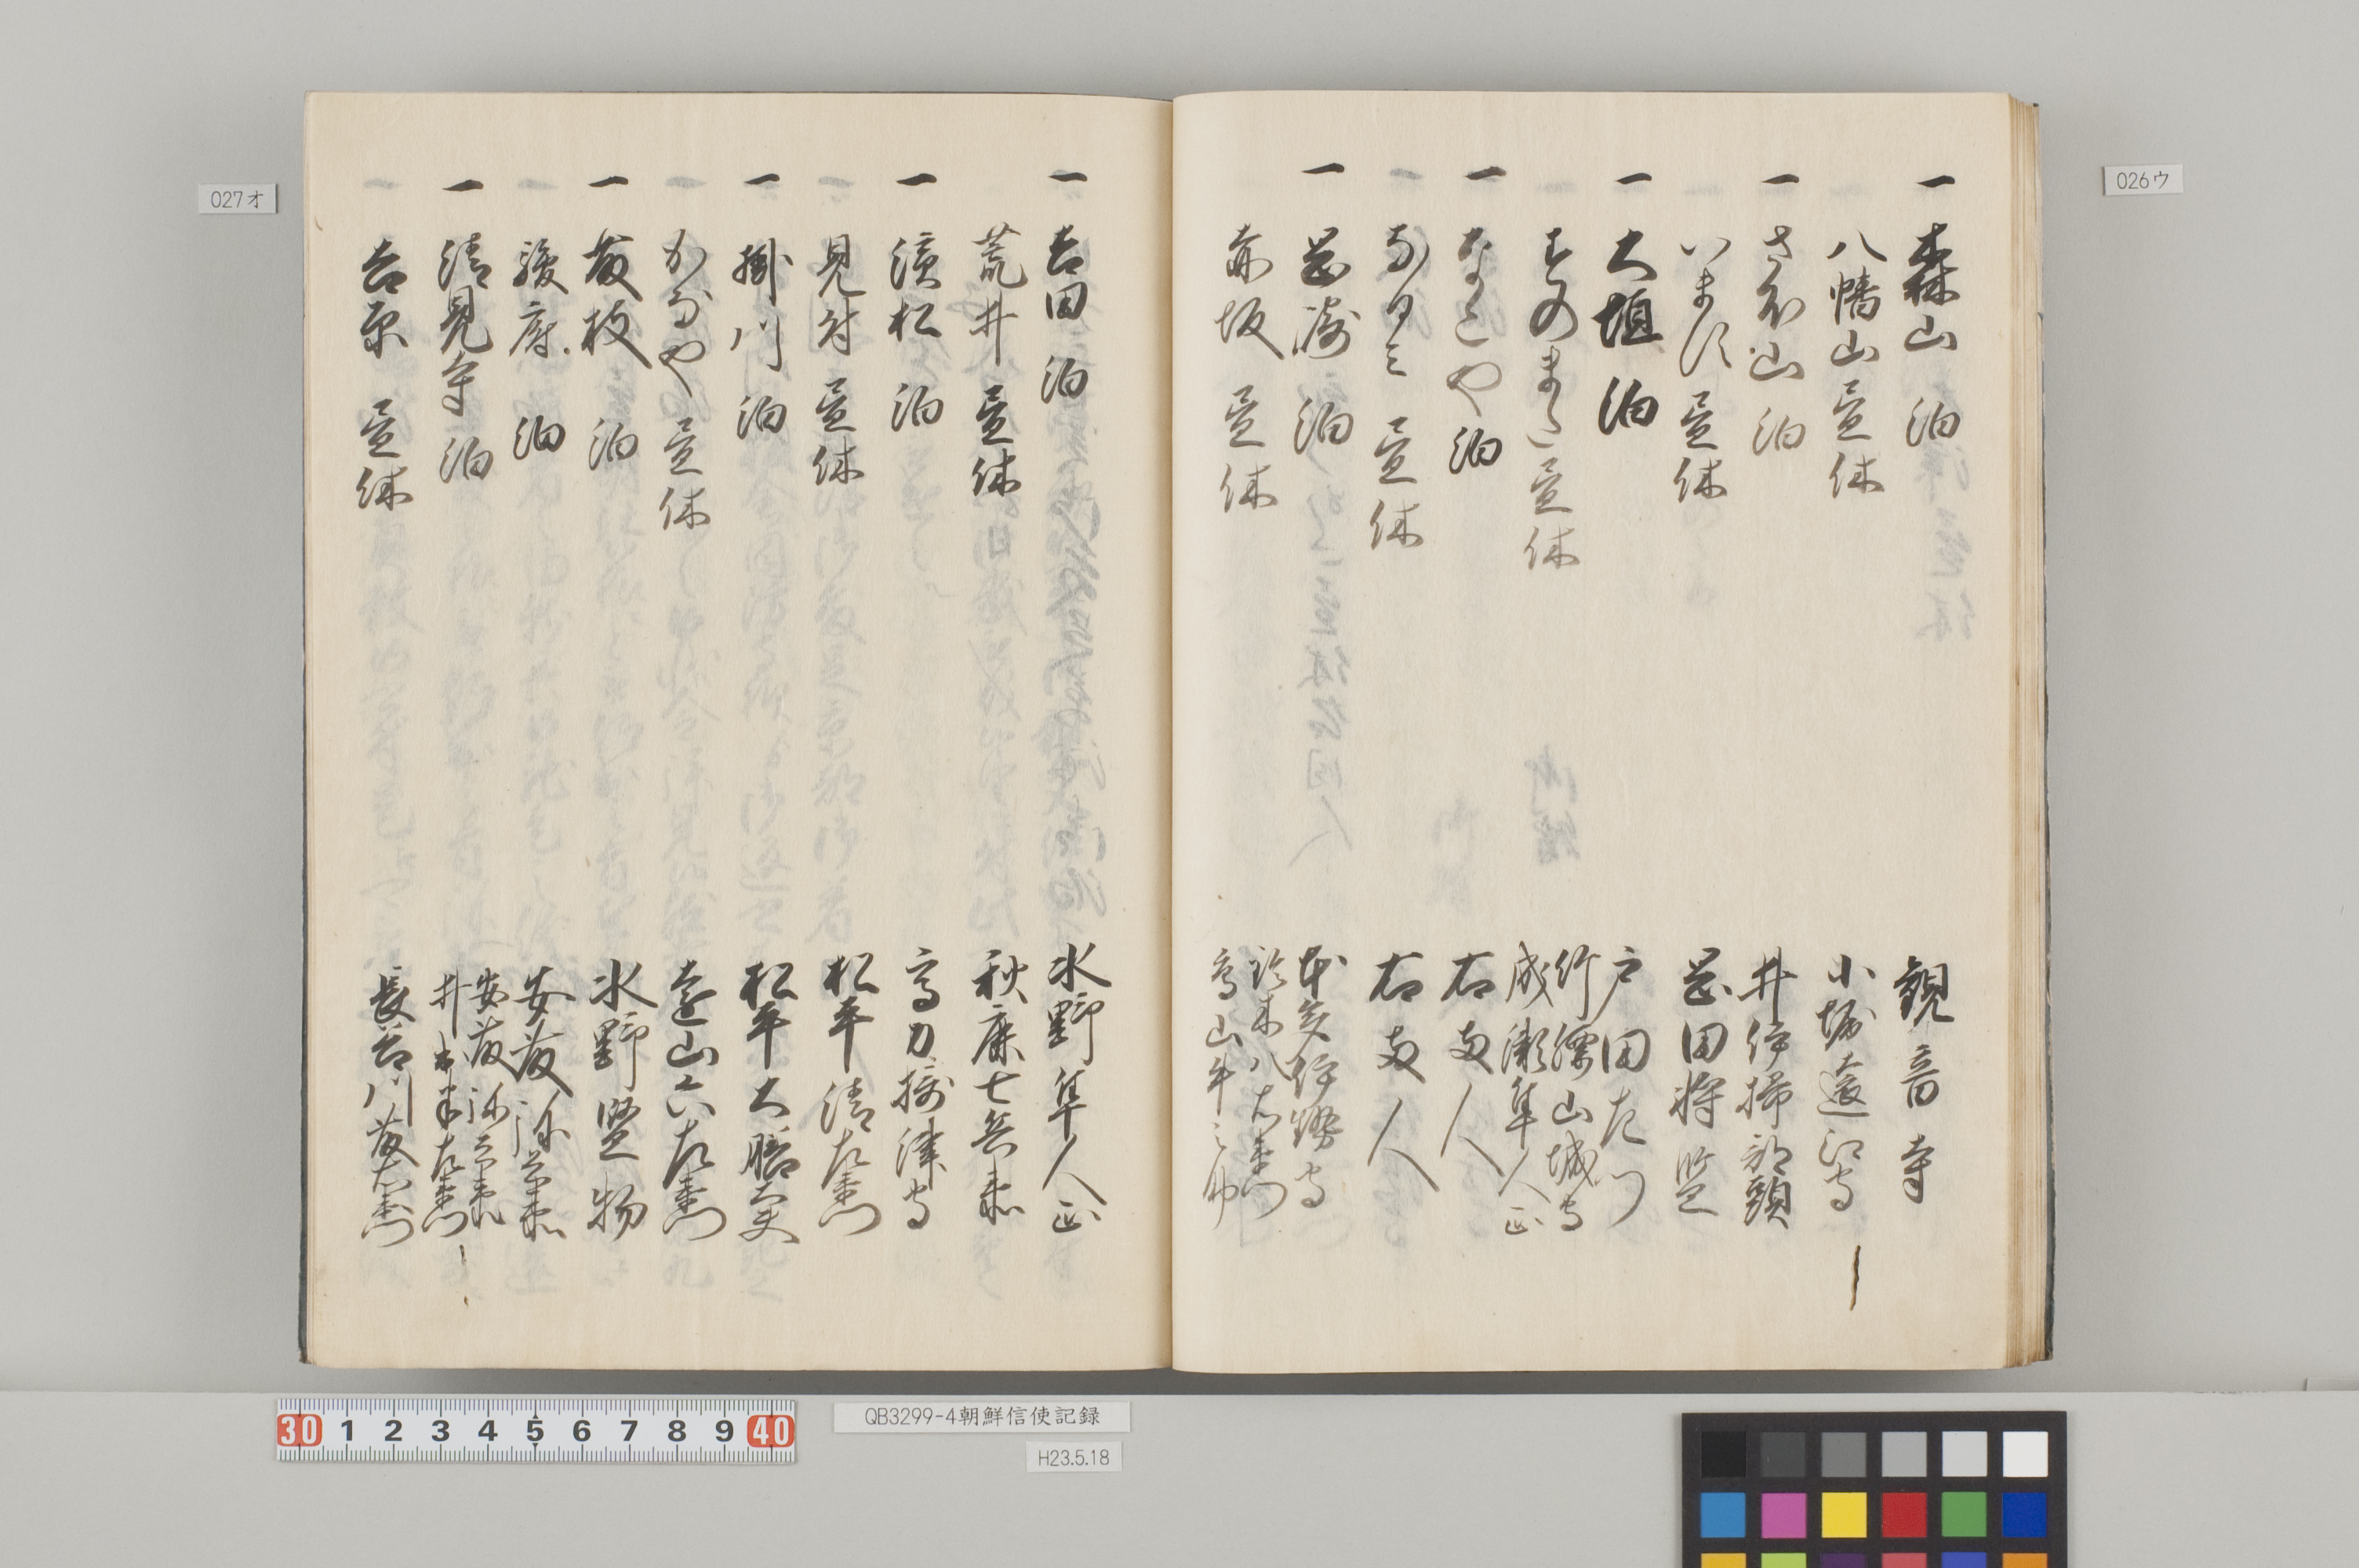 026ウ
一 森山 泊 観音寺
八幡山 昼休 小堀遠江守
一 さお山 泊 井伊掃部頭
います 昼休 岡田将監
一 大垣 泊 戸田左門
すのまた 昼休 竹腰山城守
成瀬隼人正
一 なこや 泊 右両人
なるミ 昼休 右両人
一 岡崎 泊 本多伊勢守
赤坂 昼休 鈴木八右衛門
鳥山牛之助
027オ
一 吉田 泊 水野隼人正
荒井 昼休 秋鹿七兵衛
一 濱松 泊 高力摂津守
見付 昼休 松平清左衛門
一 掛川 泊 松平大膳大夫
かなや 昼休 遠山六左衛門
一 藤枝 泊 水野監物
駿府 泊 安藤弥兵衛
一 清見寺 泊 安藤弥兵衛
井出半左衛門
吉原 昼休 長谷川藤右衛門
30 1 2 3 4 5 6 7 8 9 40
QB3299-4朝鮮信使記録
H23.5.18